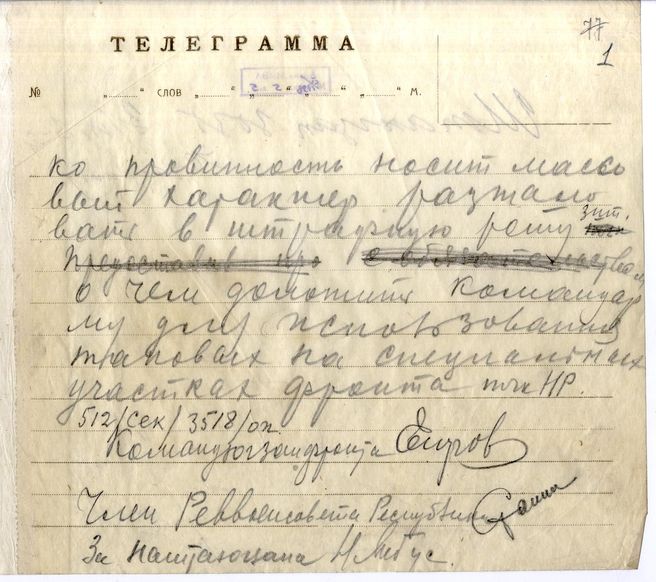 77
1
ТЕЛЕГРАММА
№ „ “ слов „ “ „ “ „ “ м.
ко провинность носит массо
вый характер разжало
вать в штрафную роту
о чем доложить командар
му для использования
таковых на специальных
участках фронта пчк НР.
512/сек/3518/оп
Командюгзапфронта Егоров
Член Реввоенсовета Республики Сталин
За наштаюгзапа